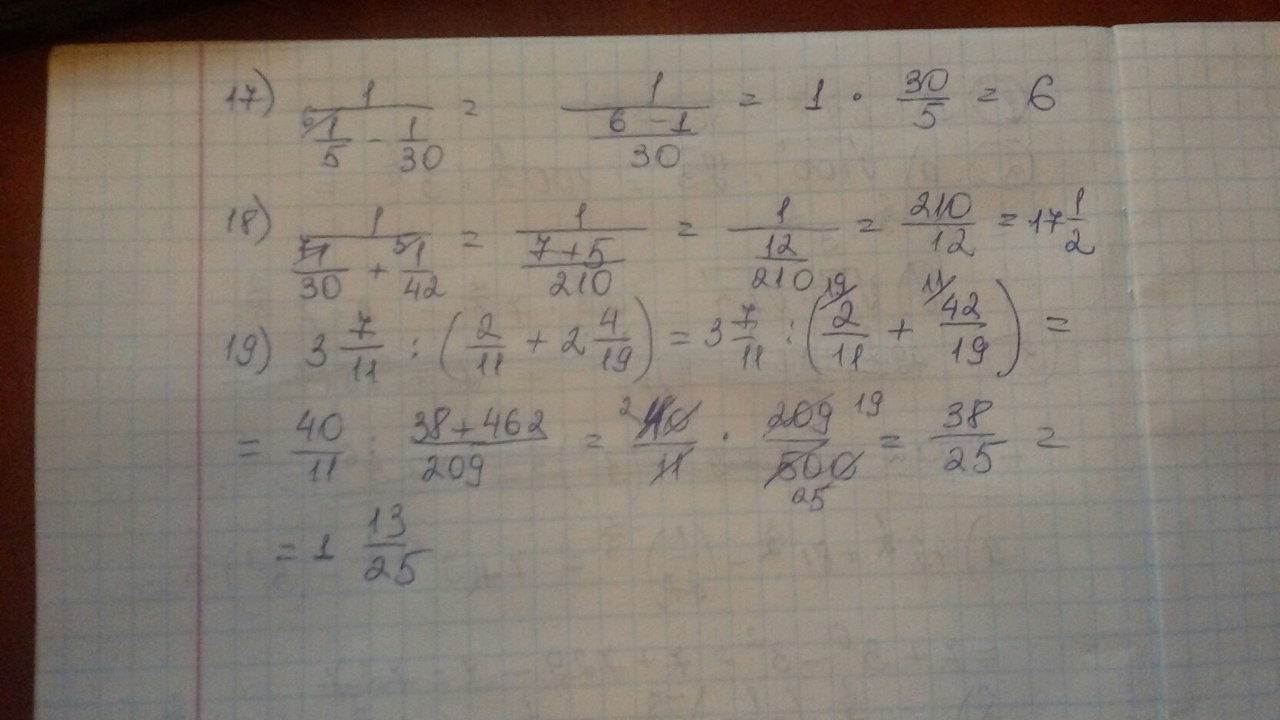 17) 1/(1/5 - 1/30) = 1/((6 - 1)/30) = 1 · 30/5 = 6
18) 1/(1/30 + 1/42) = 1/((7+5)/210) = 1/(12/210) = 210/12 = 17 1/2
19) 3 7/11 : (2/11 + 2 4/19) = 3 7/11 : (2/11 + 42/19) =
= 40/11 : (38+462)/209 = 40/11 · 209/500 = 38/25 =
= 1 13/25